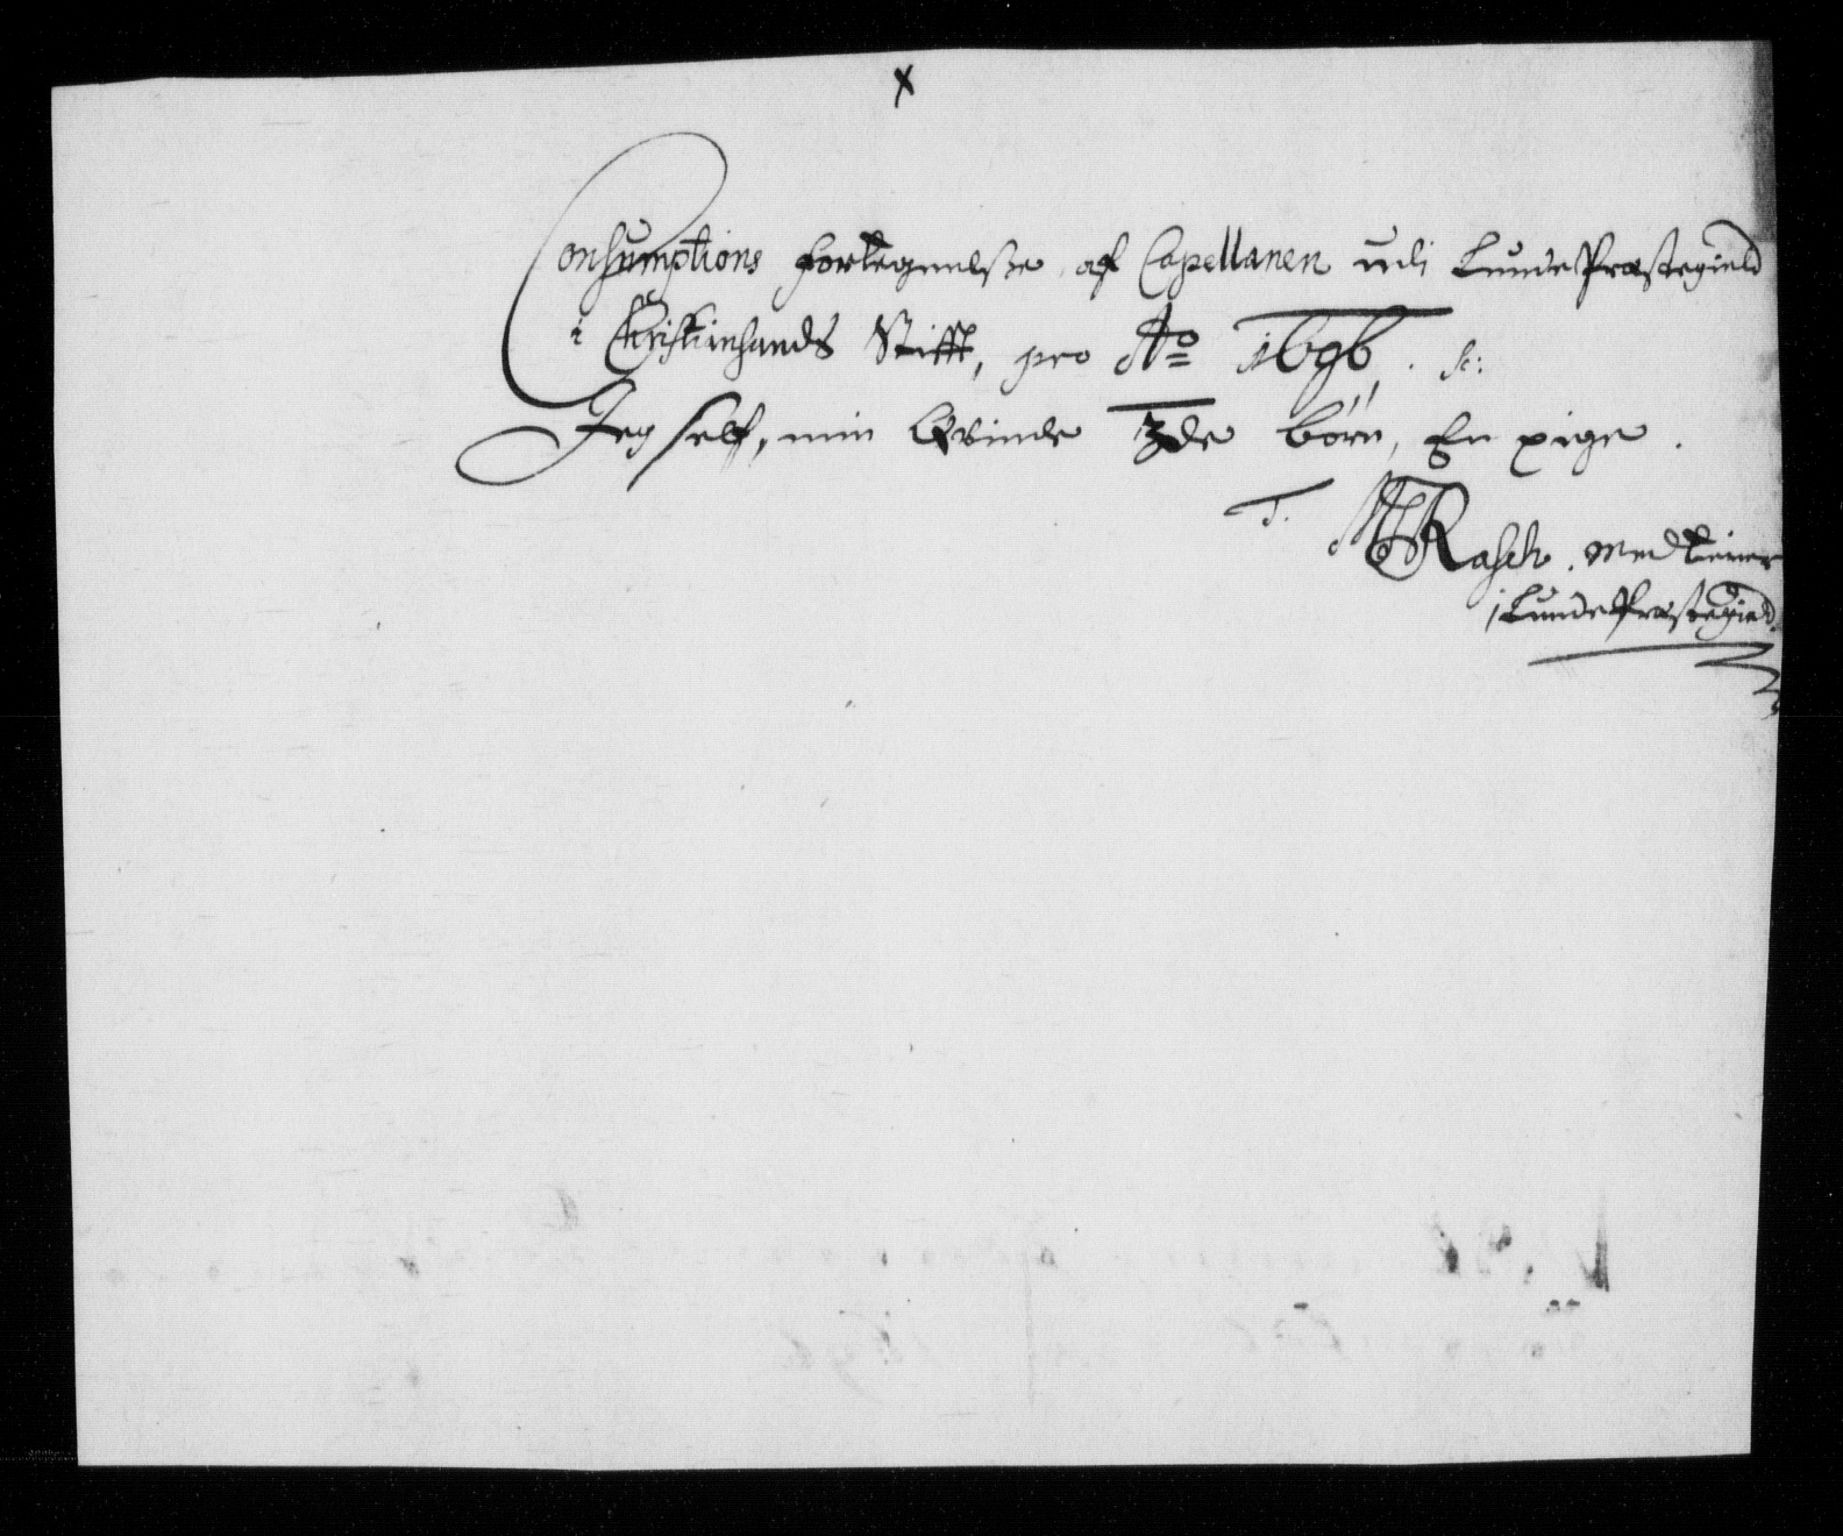 x
Consumptions Fortegnelsse af Capellanen udi Lunde Præstegield
i Christiansands Stifft, pro Ao 1696. sc:
Jeg self, min Qvinde 3de børn, En pige.
T. Rasch. Medtiener
i Lunde Præstegield.